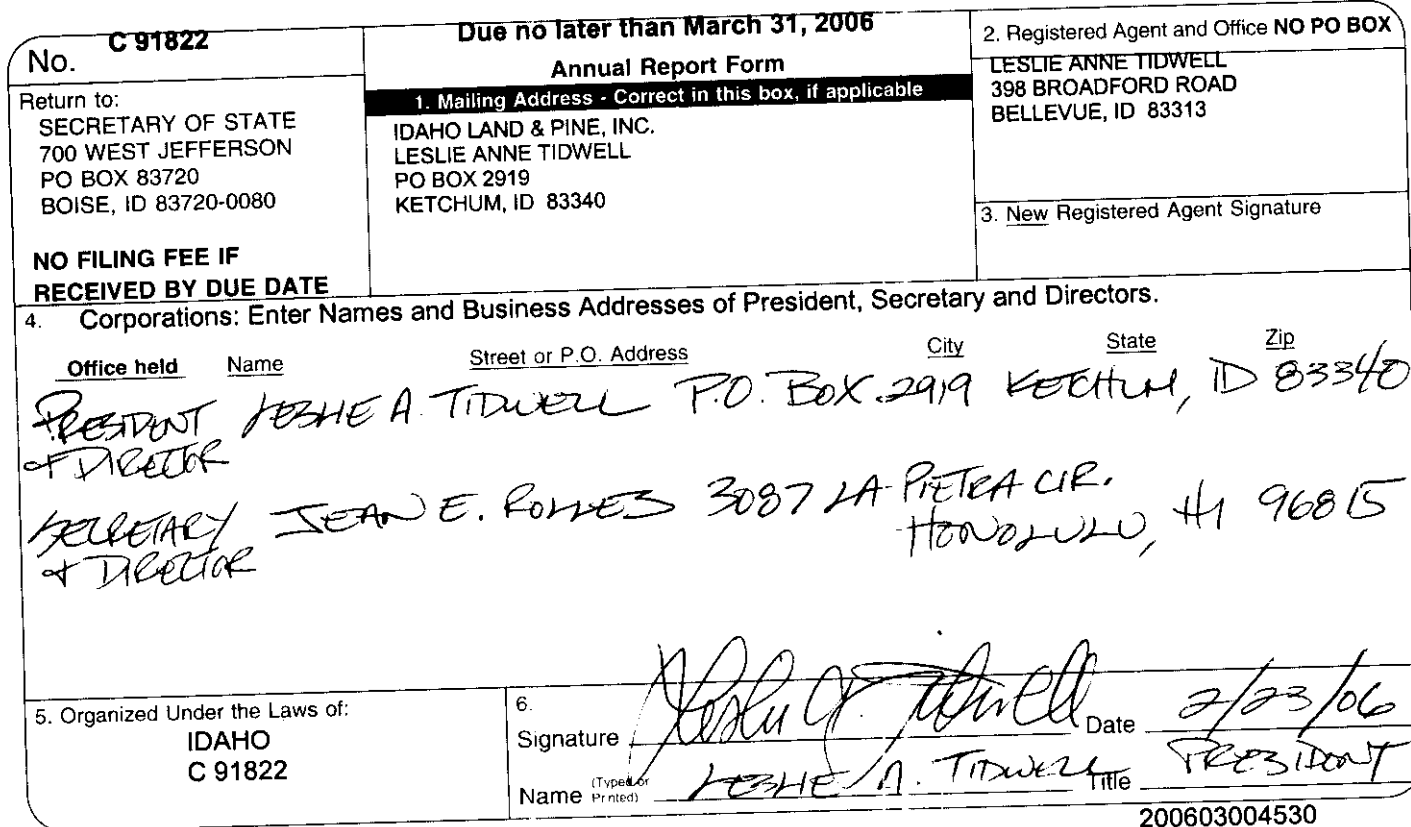 No. C 91822
Return to:
SECRETARY OF STATE
700 WEST JEFFERSON
PO BOX 83720
BOISE, ID 83720-0080
NO FILING FEE IF
RECEIVED BY DUE DATE
Due no later than March 31, 2006
Annual Report Form
1. Mailing Address - Correct in this box, if applicable
IDAHO LAND & PINE, INC.
LESLIE ANNE TIDWELL
PO BOX 2919
KETCHUM, ID 83340
2. Registered Agent and Office NO PO BOX
LESLIE ANNE TIDWELL
398 BROADFORD ROAD
BELLEVUE, ID 83313
3. New Registered Agent Signature
4. Corporations: Enter Names and Business Addresses of President, Secretary and Directors.
Office held Name Street or P.O. Address City State Zip
PRESIDENT LESLIE A. TIDWELL P.O. BOX 2919 KETCHUM, ID 83340
& DIRECTOR
SECRETARY JEAN E. ROLLES 3087 LA PIETRA CIR.
& DIRECTOR HONOLULU, HI 96815
5. Organized Under the Laws of:
IDAHO
C 91822
6.
Signature Leslie A. Tidwell Date 2/23/06
Name (Typed or Printed) LESLIE A. TIDWELL Title PRESIDENT
200603004530